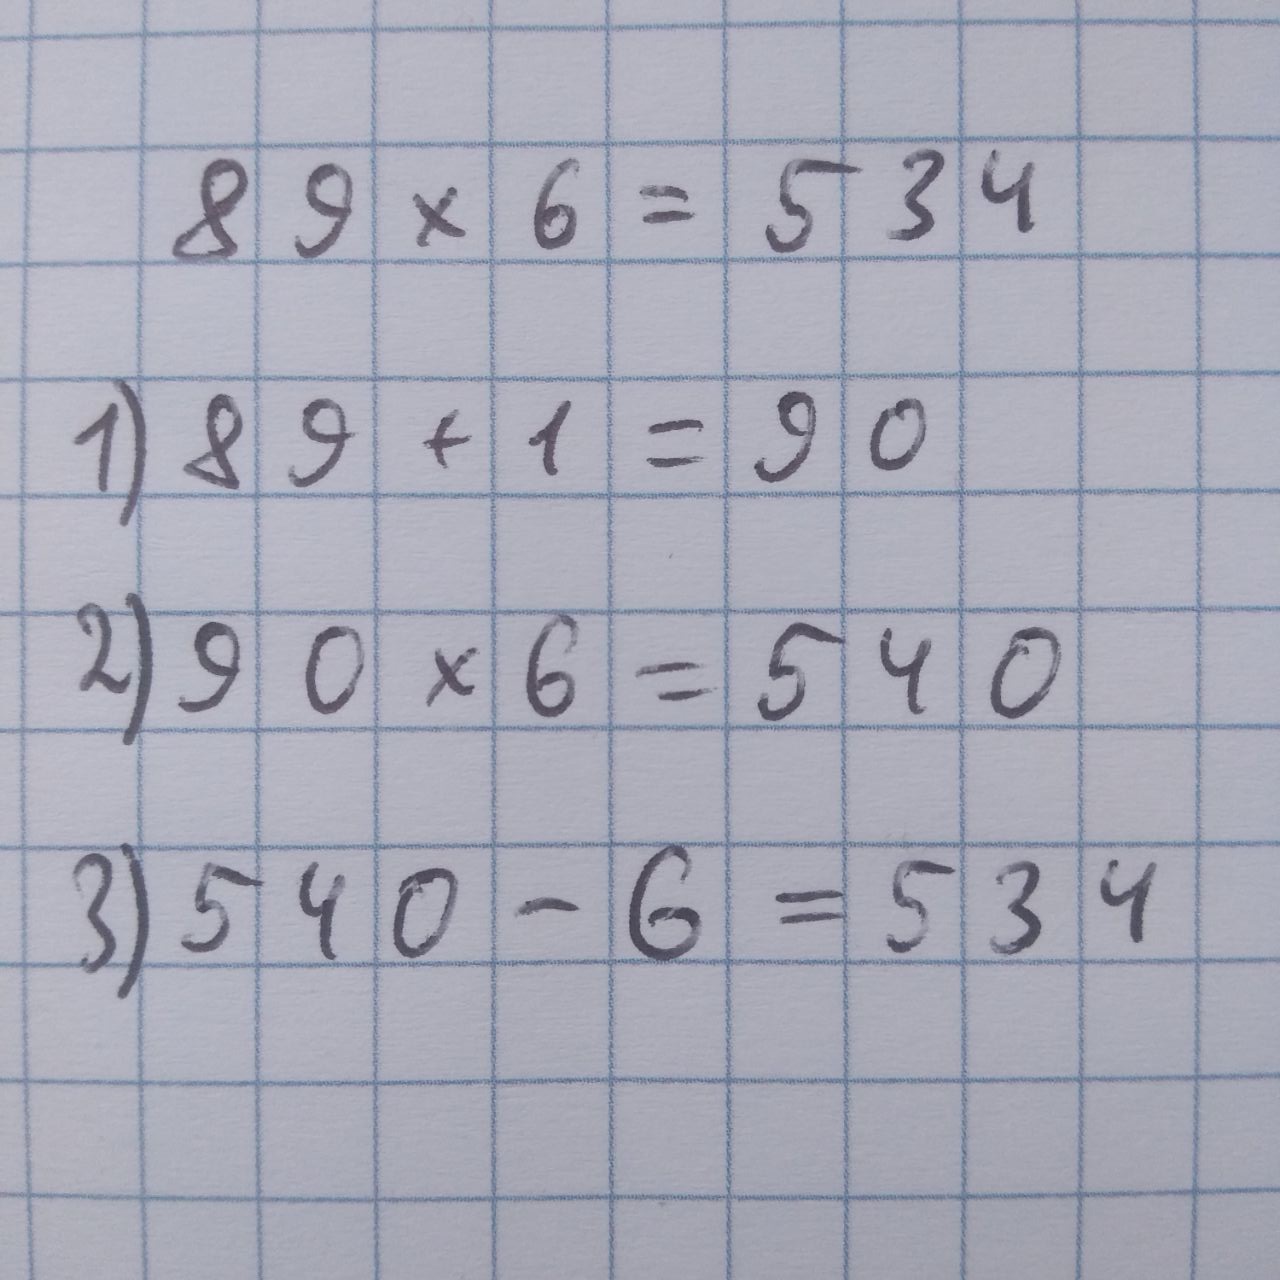 89 × 6 = 534
1) 89 + 1 = 90
2) 90 × 6 = 540
3) 540 - 6 = 534